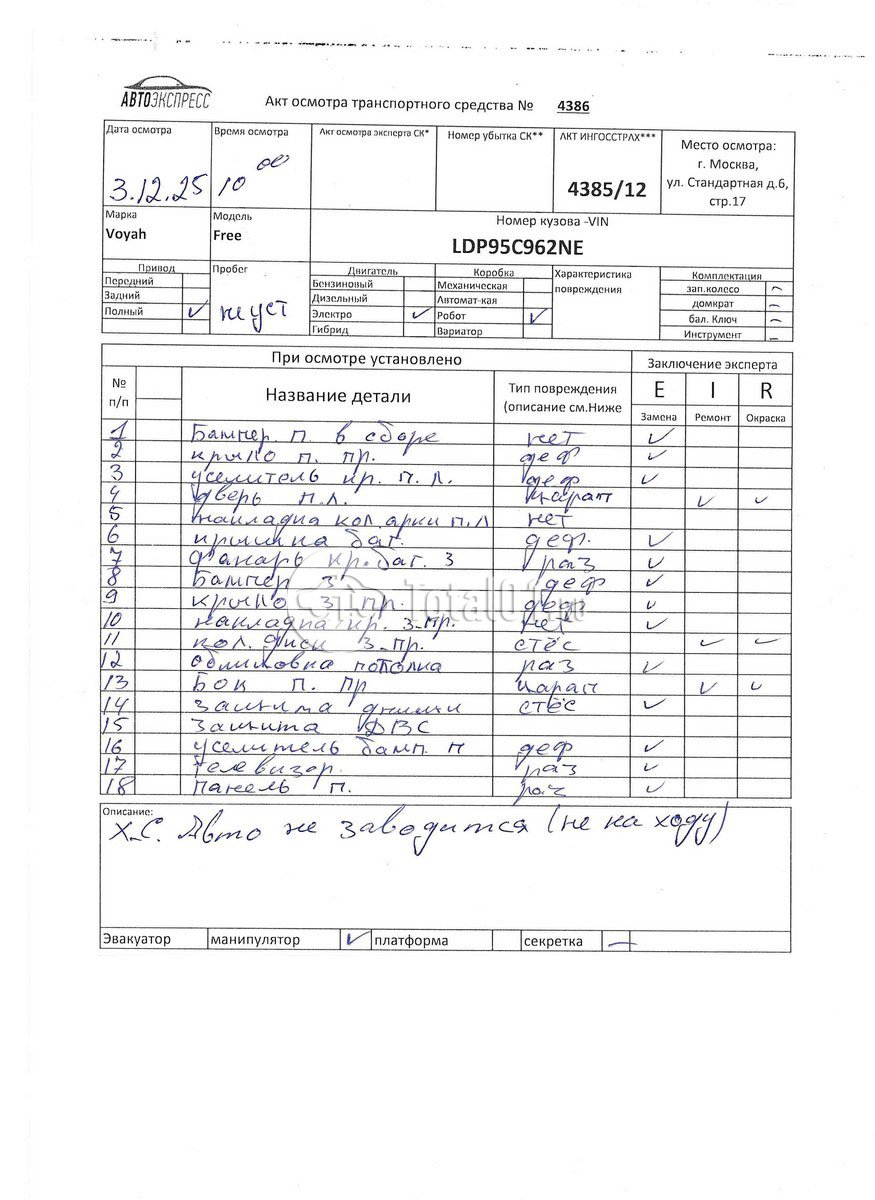 АВТОЭКСПРЕСС
Акт осмотра транспортного средства № 4386
Дата осмотра Время осмотра Акт осмотра эксперта СК* Номер убытка СК** АКТ ИНГОССТРАХ*** Место осмотра:
г. Москва,
ул. Стандартная д.6,
стр.17
3.12.25 10 00 4385/12
Марка Модель Номер кузова -VIN
Voyah Free LDP95C962NE
Привод Пробег Двигатель Коробка Характеристика повреждения Комплектация
Передний Бензиновый Механическая зап.колесо –
Задний Дизельный Автомат-кая домкрат –
Полный ✓ не уст Электро ✓ Робот ✓ бал. Ключ –
Гибрид Вариатор Инструмент –
При осмотре установлено Заключение эксперта
№ п/п Название детали Тип повреждения (описание см.Ниже E I R
Замена Ремонт Окраска
1 Бампер п. в сборе нет ✓
2 крыло п. пр. деф ✓
3 уселитель кр. п. л. деф ✓
4 дверь п.л. царап ✓ ✓
5 накладка кол арки п.л нет
6 крышка баг. деф. ✓
7 Фанарь кр. баг. з раз ✓
8 Бампер з деф ✓
9 крыло з пр. деф ✓
10 накладка кр. з-пр. нет ✓
11 кол. диск з-пр. стёс ✓ ✓
12 облиловка потолка раз ✓
13 Бок п. пр царап ✓ ✓
14 защита днища стёс ✓
15 Защита ДВС
16 уселитель бамп. п деф ✓
17 телевизор. раз ✓
18 панель п. раз ✓
Total01.ru
Описание:
Х-С. Авто не заводится (не на ходу)
Эвакуатор манипулятор ✓ платформа секретка –